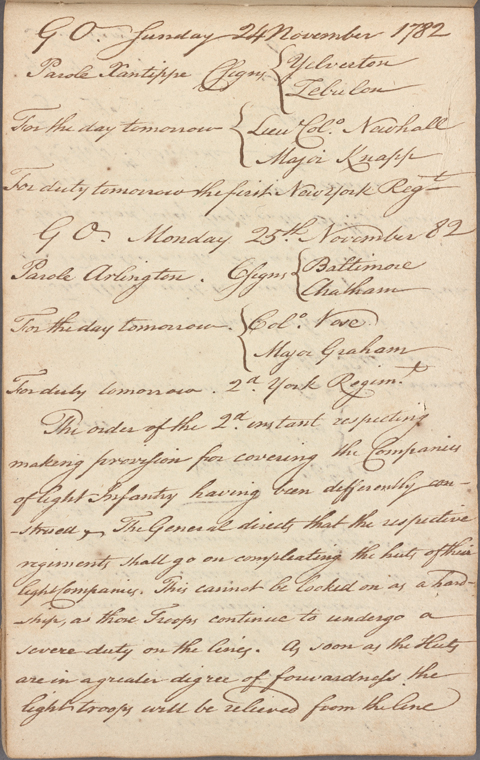 G O. Sunday 24 November 1782
Parole Xantippe CSigns { Yelverton
Zebulon
For the day tomorrow { Lieu Colo. Newhall
Major Knapp
For duty tomorrow the first New York Regt.
G O. Monday 25th. November 82
Parole Arlington. CSigns { Baltimore
Chatham
For the day tomorrow. { Colo. Vose
Major Graham
For duty tomorrow. 2d. York Regimt.
The order of the 2d. instant respecting
making provision for covering the Companies
of light Infantry having been differently con-
-strued, The General directs that the respective
regiments shall go on compleating the huts of their
light Companies. This cannot be looked on as a hard-
ship, as those Troops continue to undergo a
severe duty on the lines. As soon as the Huts
are in a greater digree of forwardness, the
light troops will be relieved from the line